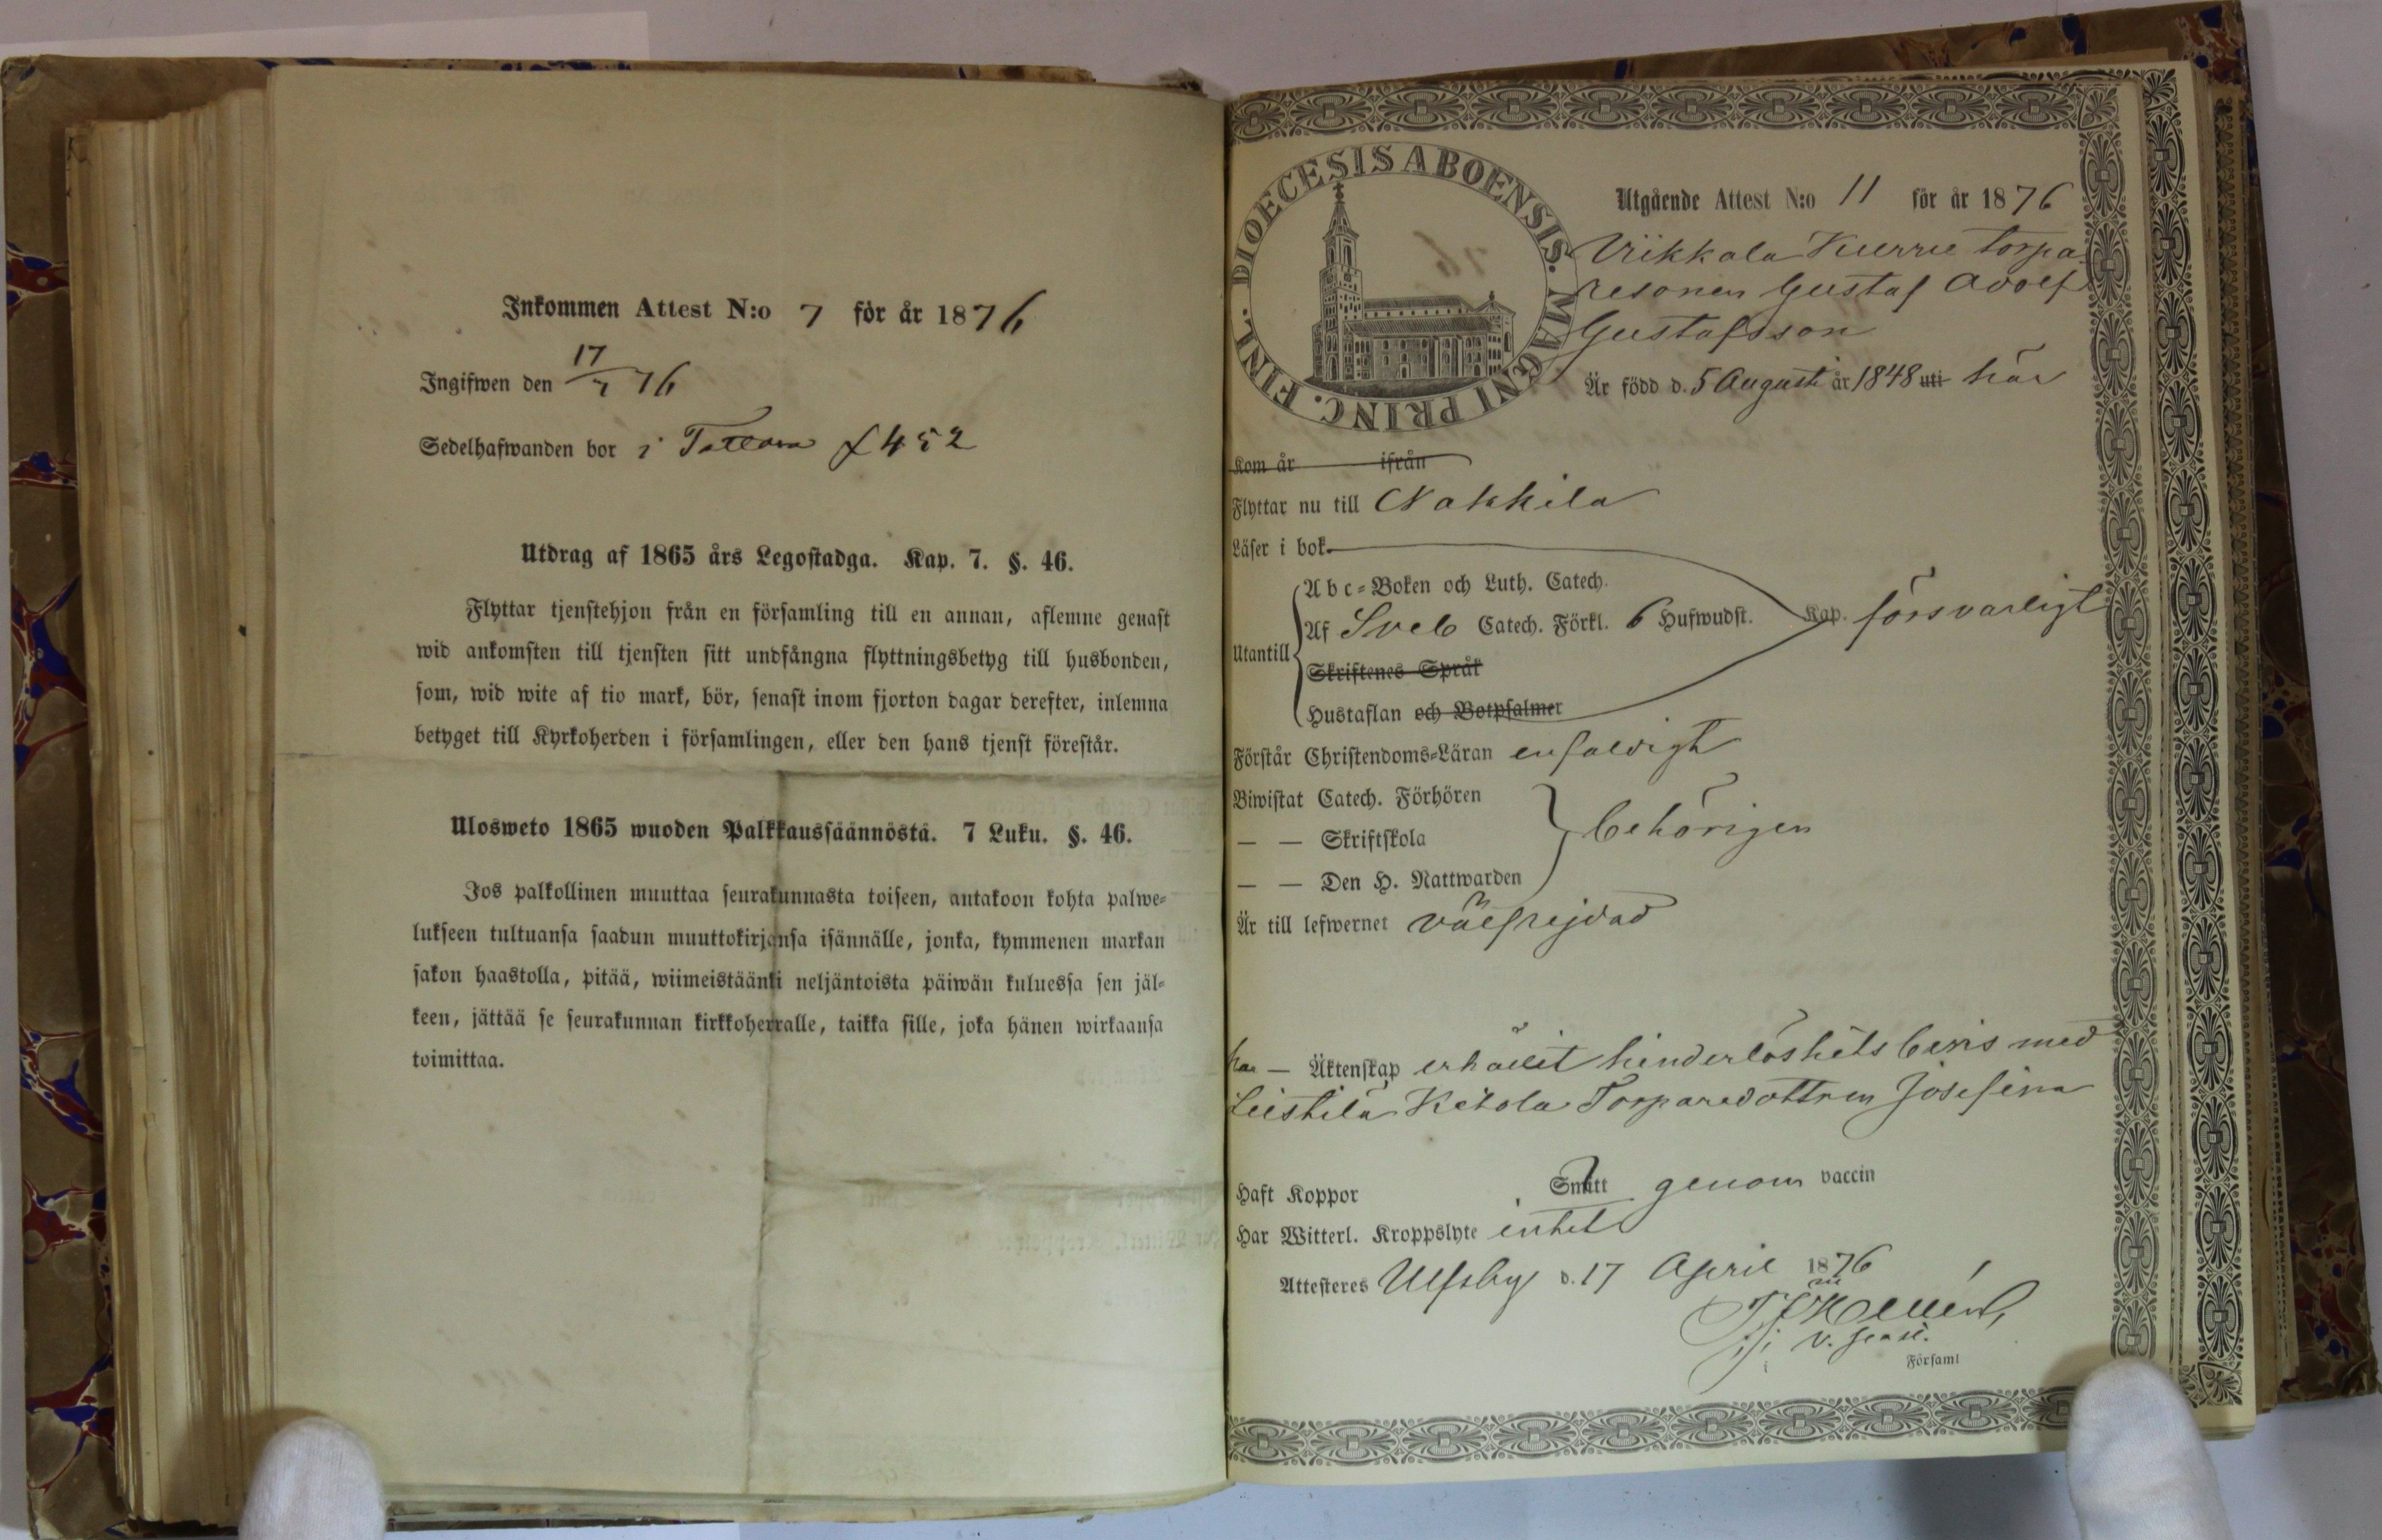 Inkommen Attest N:o 7 för år 1876
Ingifwen den 17/7 76
Sedelhafwanden bor i f 452
Utdrag af 1865 års Legostadga. Kap. 7. §. 46.
Flyttar tjenstehjon från en församling till en annan, aflemne genast
wid ankomsten till tjensten sitt undfångna flyttningsbetyg till husbonden,
som, wid wite af tio mark, bör, senast inom fjorton dagar derefter, inlemna
betyget till Kyrkoherden i församlingen, eller den hans tjenst förestår.
Ulosweto 1865 wuoden Palkkaussäännöstä. 7 Luku. §. 46.
Jos palkollinen muuttaa seurakunnasta toiseen, antakoon kohta palwe-
lukseen tultuansa saadun muuttokirjansa isännälle, jonka, kymmenen markan
sakon haastolla, pitää, wiimeistäänki neljäntoista päiwän kuluessa sen jäl-
keen, jättää se seurakunnan kirkkoherralle, taikka sille, joka hänen wirkaansa
toimittaa.
DIOECESIS ABOENSIS. MAGNI PRINC. FINL.
Utgående Attest N:o 11 för år 1876
Viikkala Kurru torpa
resonen Gustaf Adolf
Gustafsson
Är född d. 5 Augusti år 1848 uti här
Kom år ifrån
Flyttar nu till Nakkila
Läser i bok
Utantill
Abc-Boken och Luth. Catech.
Af Sveb Catech. Förkl. 6 Hufwudst. Kap. försvarligt
Skriftenes Språk
Hustaflan och Botpsalmer
Förstår Christendoms-Läran enfaldigt
Biwistat Catech. Förhören
— — Skriftskola behörigen
— — Den H. Nattwarden
Är till lefwernet välfrejdad
har — Äktenskap erhållit hinderlöshets bevis med
Leistilä Ketola Torparedottren Josefina
Haft Koppor Smitt genom vaccin
Har Witterl. Kroppslyte intet
Attesteres Ulfsby d. 17 April 1876
i Församl